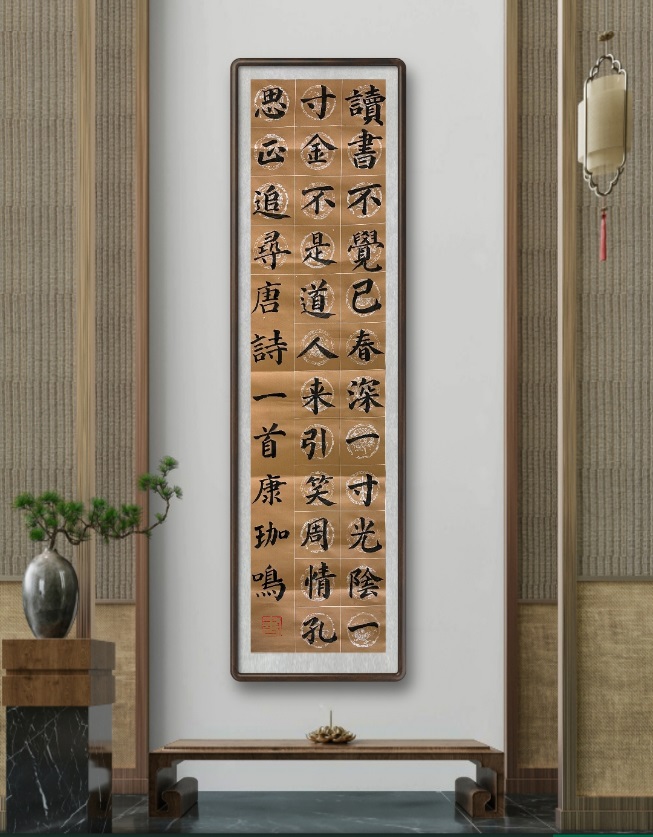 讀書不覺已春深一寸光陰一
寸金不是道人来引笑周情孔
思正追尋唐詩一首康珈鳴